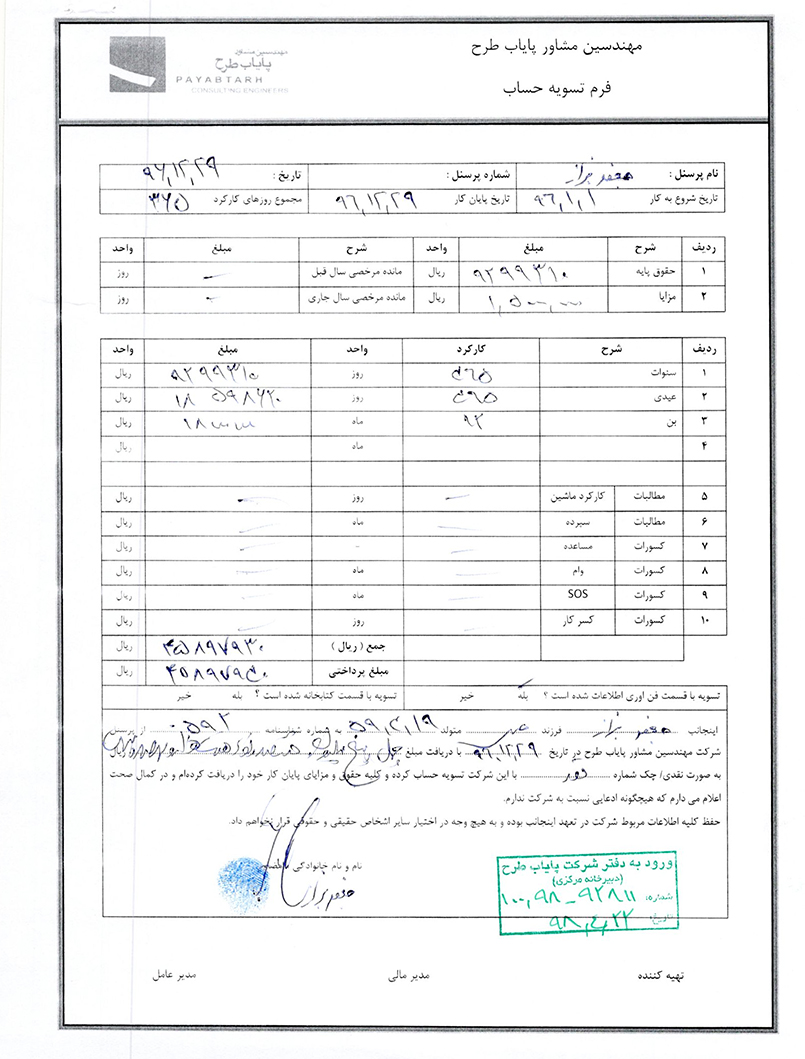 مهندسین مشاور پایاب طرح
فرم تسویه حساب
مهندسین مشاور
پایاب طرح
PAYABTARH
CONSULTING ENGINEERS
نام پرسنل : جعفر بزاز شماره پرسنل : تاریخ : ۹۶,۱۲,۲۹
تاریخ شروع به کار ۹۶,۱,۱ تاریخ پایان کار ۹۶,۱۲,۲۹ مجموع روزهای کارکرد ۳۶۵
ردیف شرح مبلغ واحد شرح مبلغ واحد
۱ حقوق پایه ۹۲۹۹۳۱۰ ریال مانده مرخصی سال قبل – روز
۲ مزایا ریال مانده مرخصی سال جاری – روز
ردیف شرح کارکرد واحد مبلغ واحد
۱ سنوات ۳۶۵ روز ۹۲۹۹۳۱۰ ریال
۲ عیدی ۳۶۵ روز ۱۸۵۹۸۶۲۰ ریال
۳ بن ماه ریال
۴ ماه ریال
۵ مطالبات کارکرد ماشین – روز – ریال
۶ مطالبات سپرده – ماه – ریال
۷ کسورات مساعده – - – ریال
۸ کسورات وام – ماه – ریال
۹ کسورات SOS – ماه – ریال
۱۰ کسورات کسر کار – روز – ریال
جمع ( ریال ) ۴۵۸۹۷۹۳۰ ریال
مبلغ پرداختی ۴۵۸۹۷۹۳۰ ریال
تسویه با قسمت فن آوری اطلاعات شده است ؟ بله خیر تسویه با قسمت کتابخانه شده است ؟ بله خیر
اینجانب جعفر بزاز فرزند متولد ۵۹,۲,۱۹ به شماره شناسنامه ۵۹۲ از پرسنل
شرکت مهندسین مشاور پایاب طرح در تاریخ ۹۶,۱۲,۲۹ با دریافت مبلغ چهل پنج میلیون
به صورت نقدی/ چک شماره با این شرکت تسویه حساب کرده و کلیه حقوق و مزایای پایان کار خود را دریافت کرده‌ام و در کمال صحت
اعلام می دارم که هیچگونه ادعایی نسبت به شرکت ندارم.
حفظ کلیه اطلاعات مربوط شرکت در تعهد اینجانب بوده و به هیچ وجه در اختیار سایر اشخاص حقیقی و حقوقی قرار نخواهم داد.
نام و نام خانوادگی امضاء
جعفر بزاز
ورود به دفتر شرکت پایاب طرح
(دبیرخانه مرکزی)
شماره: ۱۰۰,۹۸-۹۲۸۱۱
تاریخ: ۹۸,۴,۲۲
تهیه کننده مدیر مالی مدیر عامل